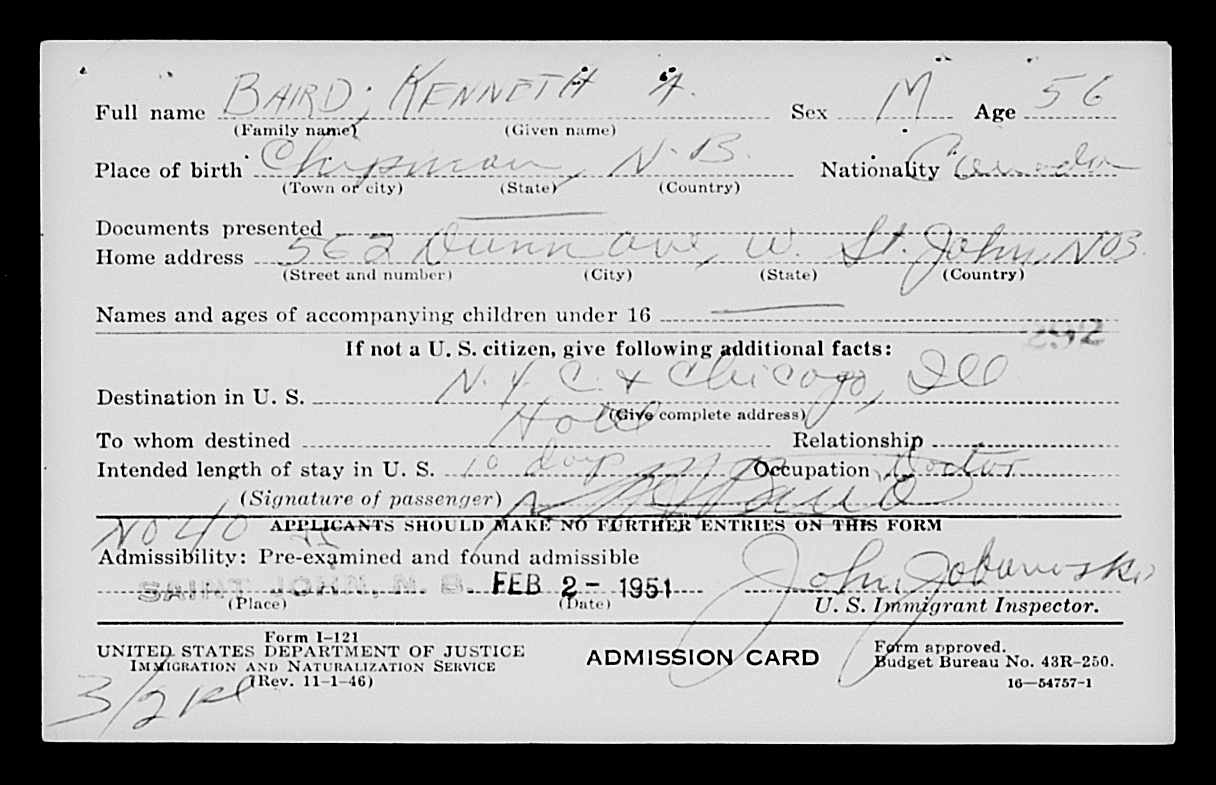 Full name BAIRD, KENNETH A. Sex M Age 56
(Family name) (Given name)
Place of birth Chipman, N.B. Nationality Canada
(Town or city) (State) (Country)
Documents presented —
Home address 562 Dunn ave, W. St. John, NB.
(Street and number) (City) (State) (Country)
Names and ages of accompanying children under 16 —
292
If not a U. S. citizen, give following additional facts:
Destination in U. S. N.Y.C. & Chicago, Ill
(Give complete address)
To whom destined Hotel Relationship
Intended length of stay in U. S. 10 days Occupation Doctor
(Signature of passenger)
NO 40
APPLICANTS SHOULD MAKE NO FURTHER ENTRIES ON THIS FORM
Admissibility: Pre-examined and found admissible
SAINT JOHN, N. B. FEB 2 - 1951 John
(Place) (Date) U. S. Immigrant Inspector.
Form I-121
UNITED STATES DEPARTMENT OF JUSTICE
IMMIGRATION AND NATURALIZATION SERVICE
(Rev. 11-1-46)
ADMISSION CARD
Form approved.
Budget Bureau No. 43R-250.
16-54757-1
3/2